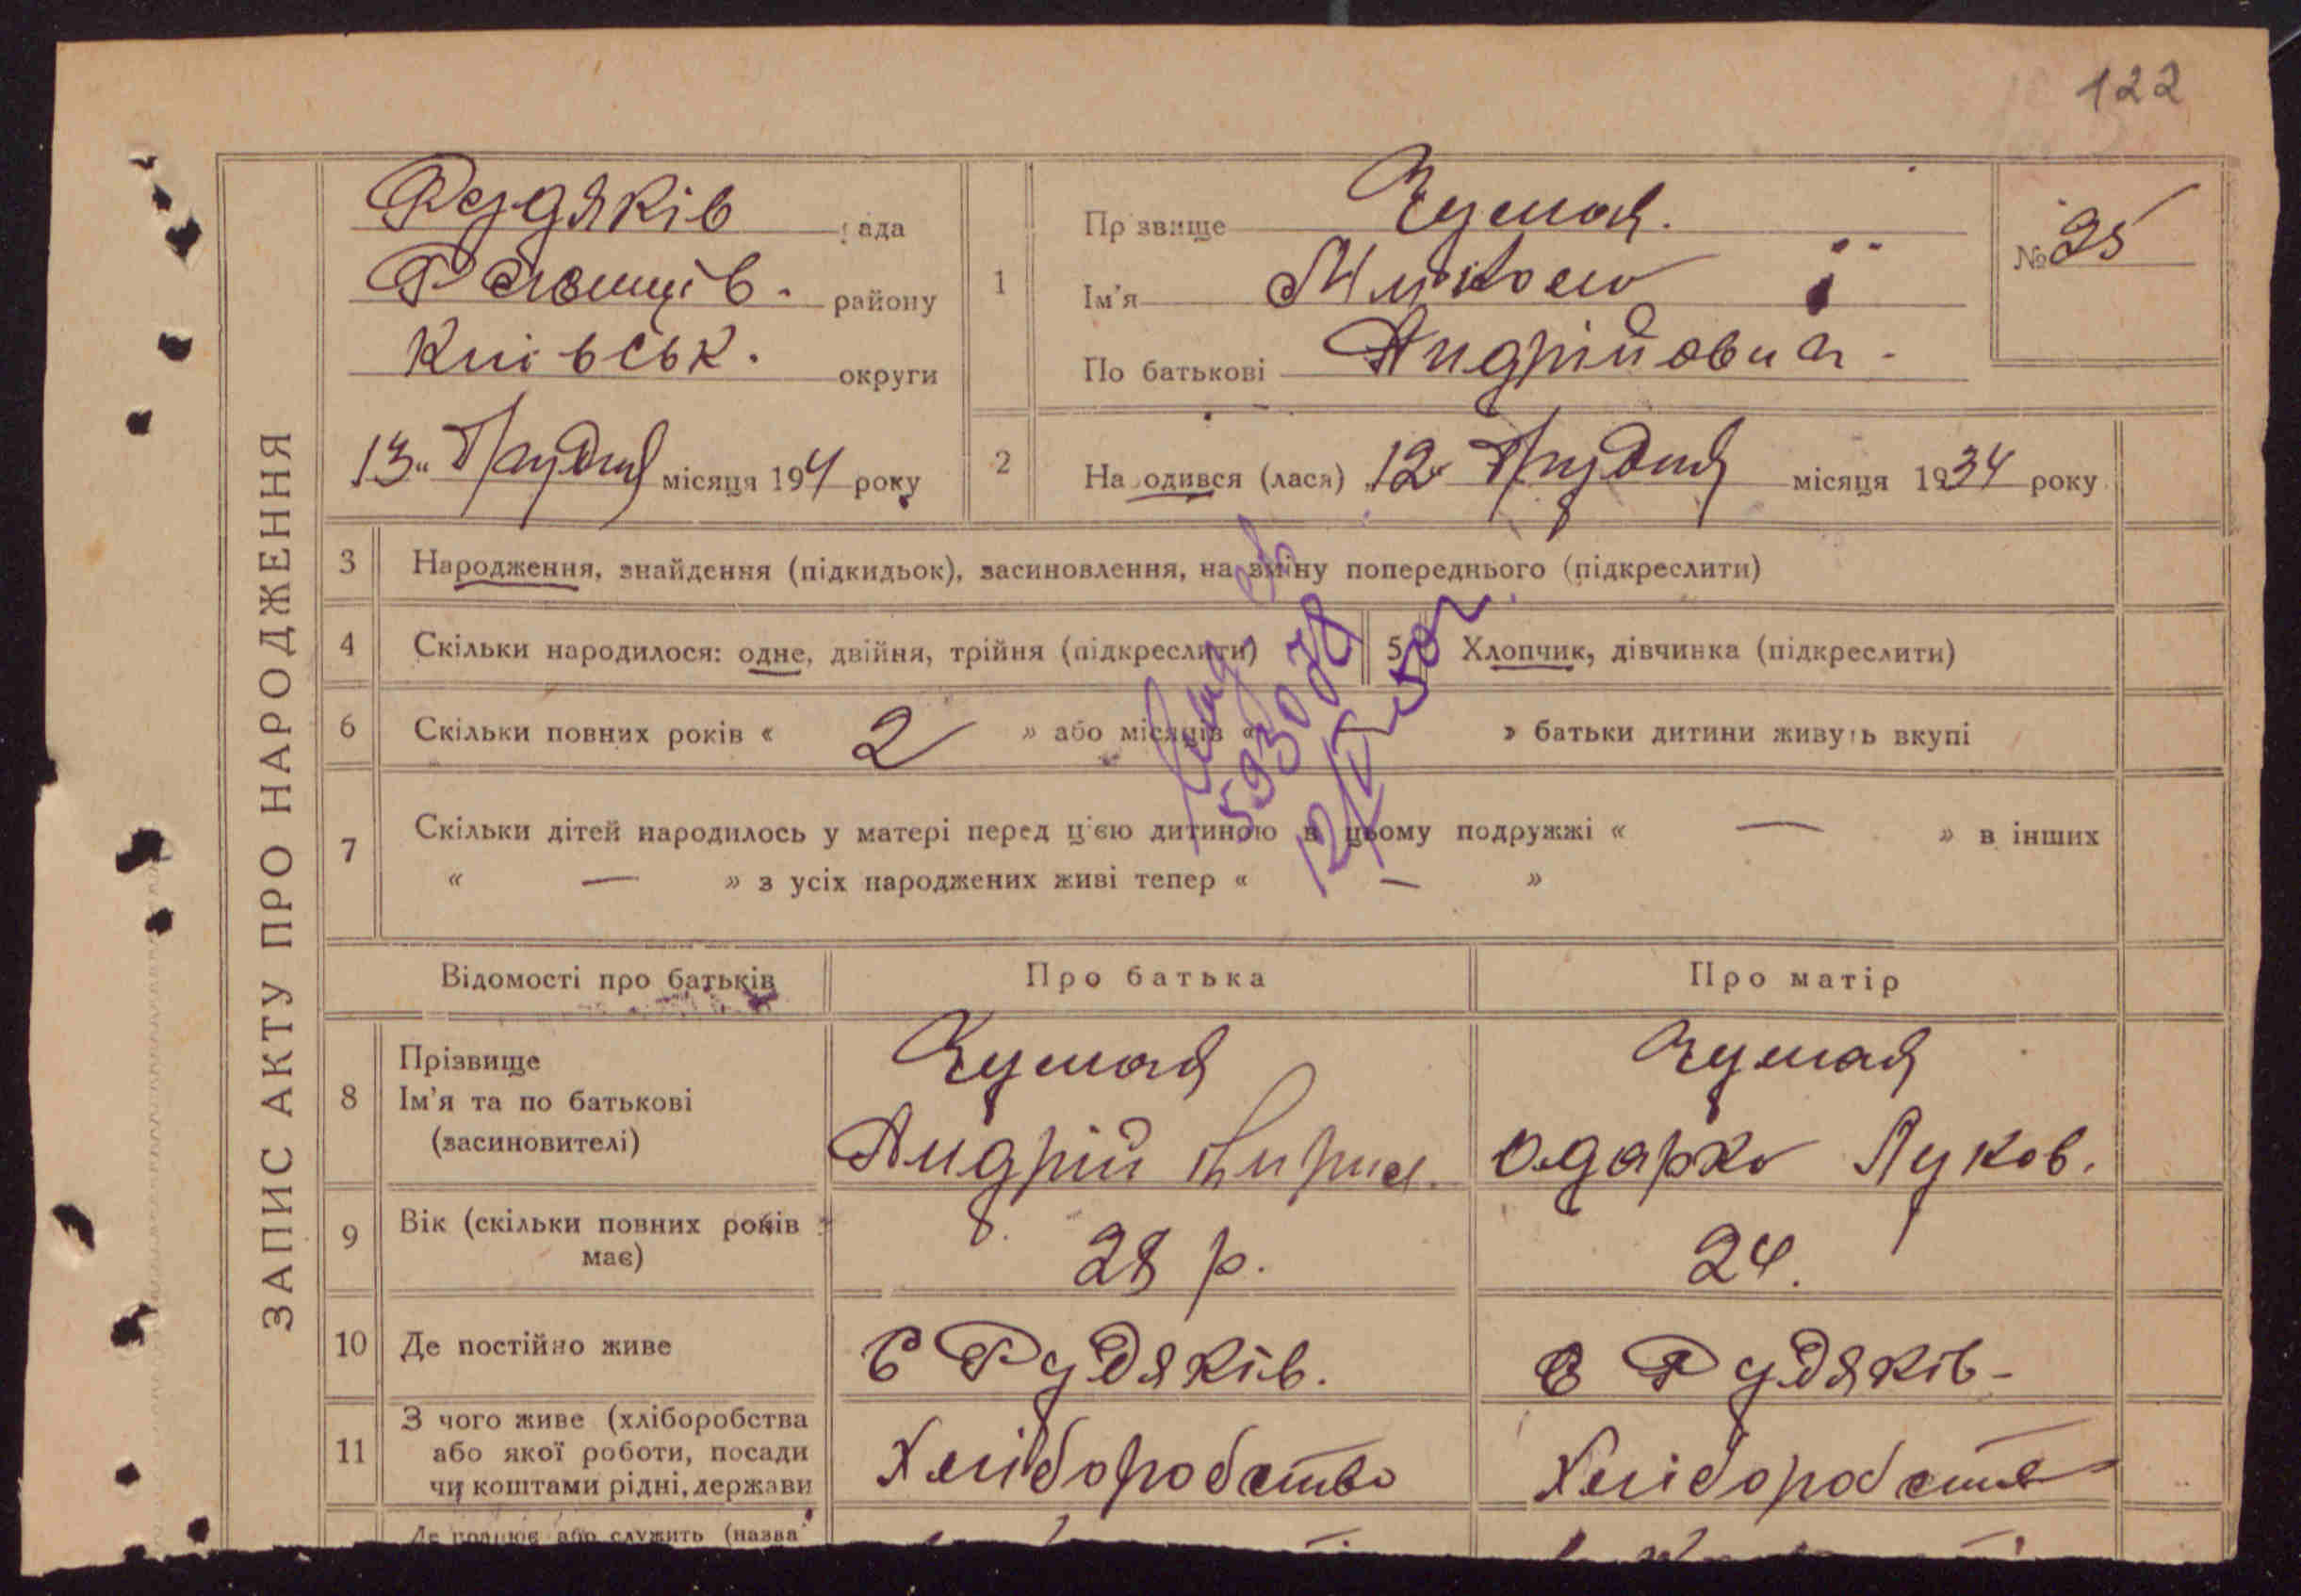 122
ЗАПИС АКТУ ПРО НАРОДЖЕННЯ
Рудяків рада
району
Київськ. округи
13 Грудня місяця 194 року
1
Прізвище Чумак.
Ім'я Микола
По батькові Андрійович
№ 25
2
Народився (лася) 12 Грудня місяця 1934 року
3 Народження, знайдення (підкидьок), засиновлення, на зміну попереднього (підкреслити)
4 Скільки народилося: одне, двійня, трійня (підкреслити)
5 Хлопчик, дівчинка (підкреслити)
6 Скільки повних років « 2 » або місяців « » батьки дитини живуть вкупі
593078
7 Скільки дітей народилось у матері перед цією дитиною в цьому подружжі « — » в інших
« — » з усіх народжених живі тепер « — »
Відомості про батьків Про батька Про матір
8 Прізвище
Ім'я та по батькові
(засиновителі)
Чумак
Андрій
Чумак
Одарка Луков.
9 Вік (скільки повних років має)
28 р.
24.
10 Де постійно живе
С Рудяків.
С Рудяків-
11 З чого живе (хліборобства
або якої роботи, посади
чи коштами рідні, держави
Хліборобство
Хліборобство
Де працює або служить (назва